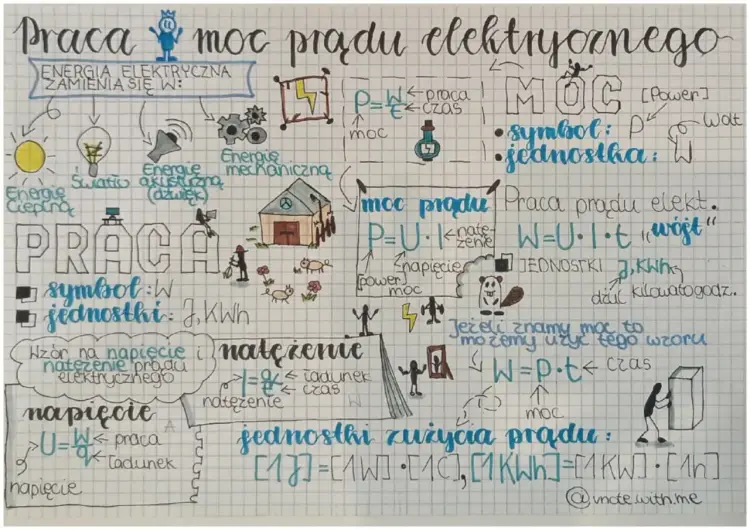 Praca i moc prądu elektrycznego
ENERGIA ELEKTRYCZNA
ZAMIENIA SIĘ W:
Energię
Cieplną
Światło
Energię
akustyczną
(dźwięk)
Energię
mechaniczną
P=W/t
praca
czas
moc
MOC
[Power]
• symbol: P
• jednostka: W
Watt
PRACA
symbol: W
jednostki: J, KWh
moc prądu
P=U·I
natę-
żenie
napięcie
[power]
moc
Praca prądu elekt.
W=U·I·t "wójt"
JEDNOSTKI J, KWh
dżul kilowatogodz.
Jeżeli znamy moc to
możemy użyć tego wzoru
W=P·t
czas
moc
Wzór na napięcie i
natężenie prądu
elektrycznego
natężenie
I=q/t
ładunek
czas
natężenie
napięcie
U=W/q
praca
ładunek
napięcie
jednostki zużycia prądu:
[1J]=[1W]·[1C], [1KWh]=[1KW]·[1h]
@vnote.with.me